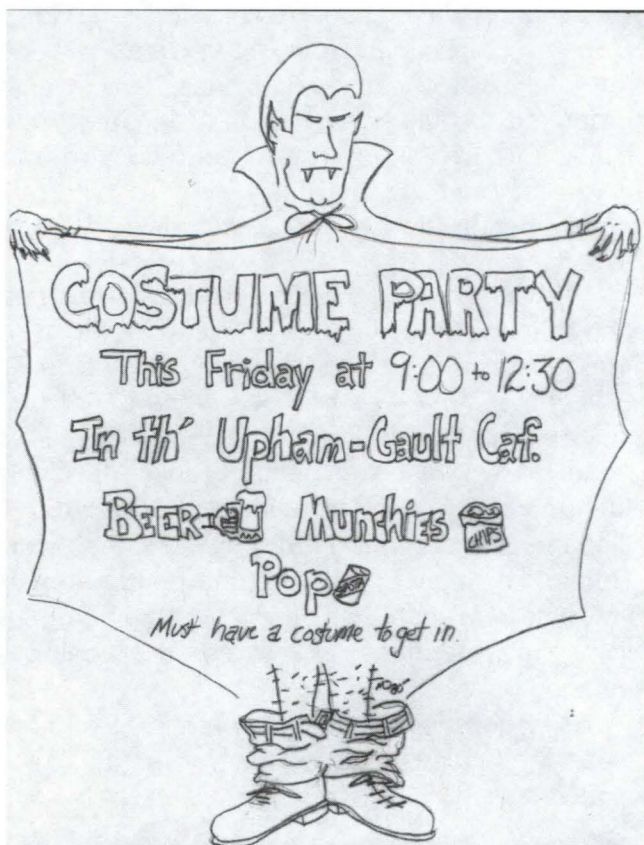 COSTUME PARTY
This Friday at 9:00 to 12:30
In th' Upham-Gault Caf.
BEER Munchies CHIPS
Pop
Must have a costume to get in.